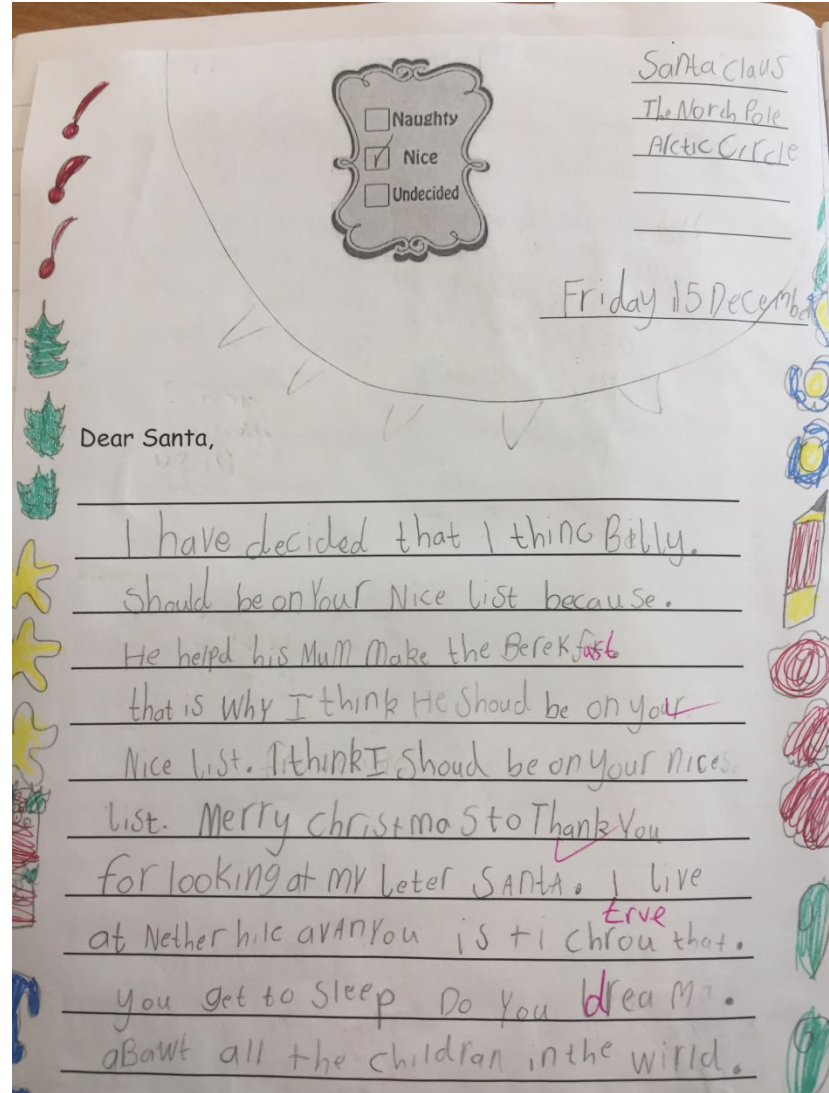 Naughty
Nice
Undecided
Santa Claus
The North Pole
Arctic Circle
Friday 15 December
Dear Santa,
I have decided that I thinc Billy.
Should be on Your Nice list because.
He helpd his Mum Make the Berekfast
that is Why I think He Shoud be on your
Nice List. I think I Shoud be on your nices
List. Merry christmas to Thank You
for looking at my Leter SANtA. I live
at Nether hilc avAnYou is ti chrou that.
trve
you get to Sleep Do You dream.
aBawt all the childran in the wirld.